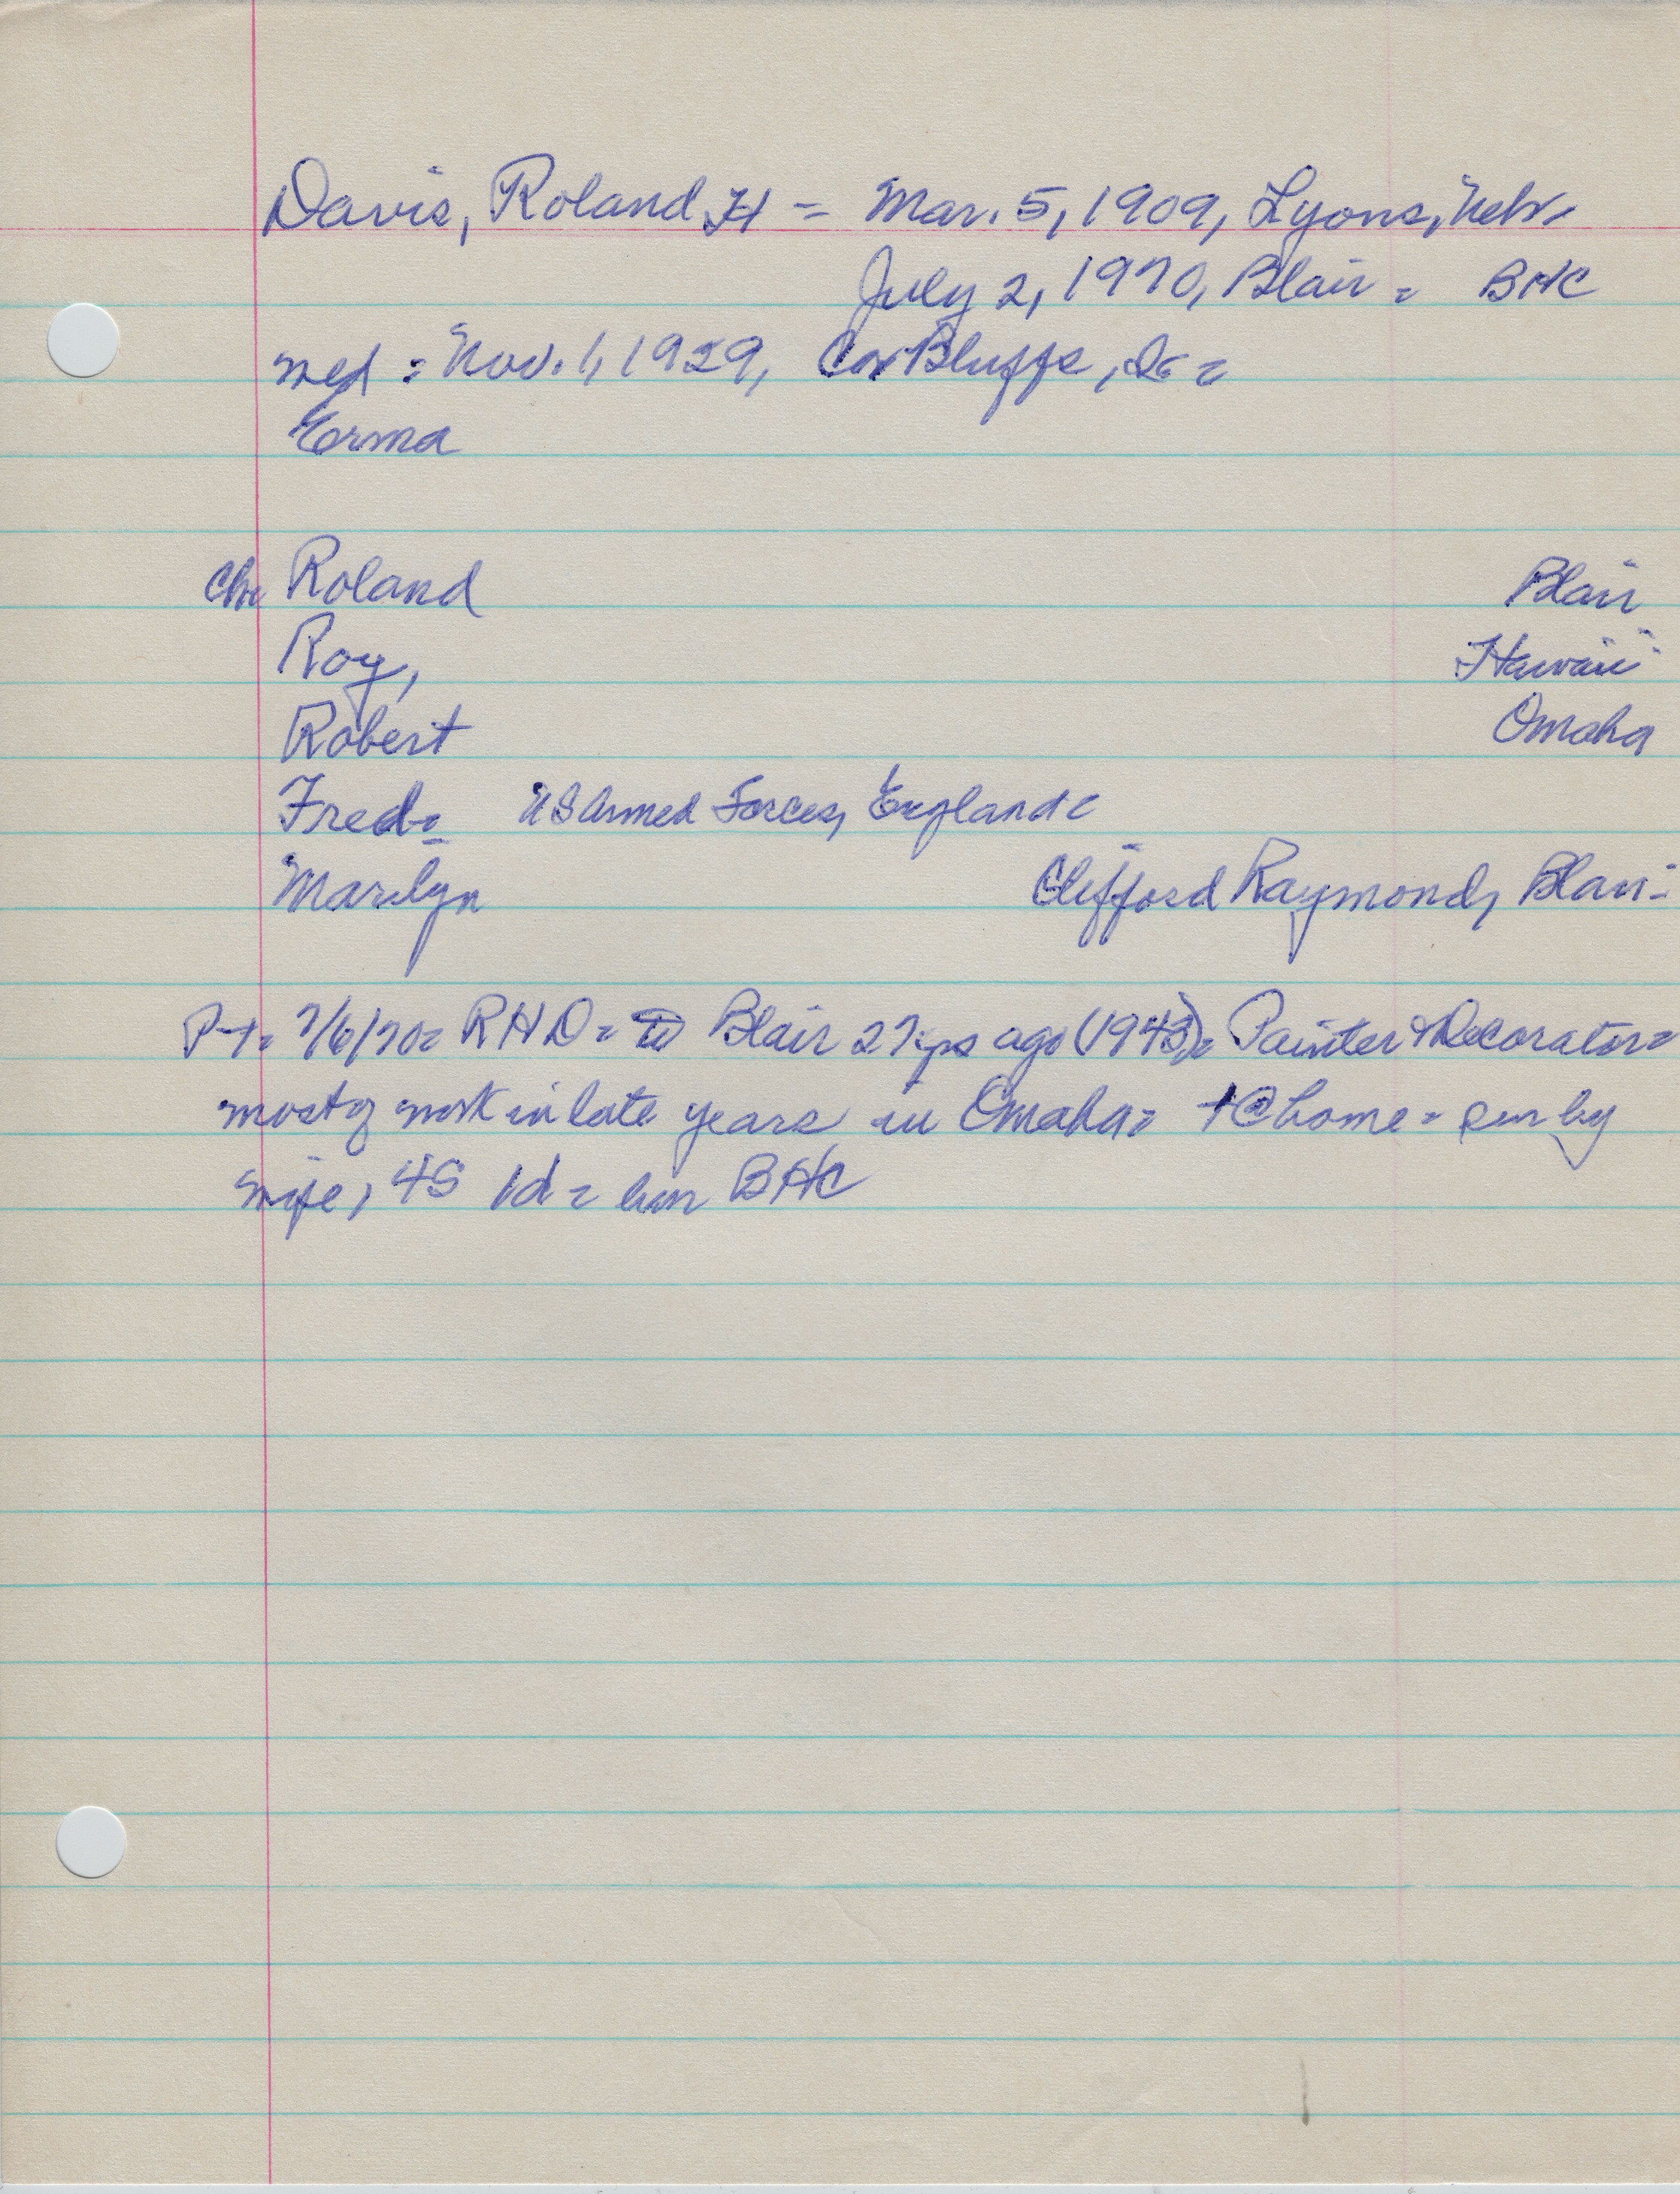 Davis, Roland H = Mar. 5, 1909, Lyons, Nebr
July 2, 1970, Blair = BHC
med = Nov. 1, 1929, Co Bluffs, Ia =
Erma
Ch Roland Blair
Roy, Hawaii
Robert Omaha
Fred = US Armed Forces, England =
Marilyn Clifford Raymond, Blair =
P-T = 7/6/70 = RHD = to Blair 27 yrs ago (1943) = Painter & Decorator =
most of work in late years in Omaha = + @ home = sur by
wife, 4S 1d = bur BHC